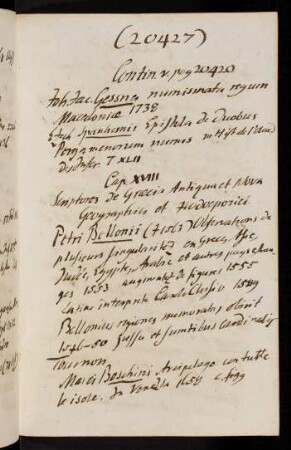 (20427)
Contin v. pag 20420
Joh. Jac. Gessner numismata regum
Macedoniae 1738
Spanhemii Epistola de Duobus
Pergamenorum numis in Hist. de l'Acad
des Inscr. T XLII
Cap. XVIII
Scriptores de Graecia Antiqua et Nova
Geographici et Hodoeporici
Petri Bellonii (+1563) Observations de
plusieurs singularités en Grece, Asie
Judée, Egypte, Arabie et autres pays etran
ges 1553 augmenté de figures 1555
latine interprete Carolo Clusio 1589
Bellonius regiones memoratas obiit
1546-50 jussu et sumtibus Cardinalis
Tournon.
Marci Boschini Arcipelago con tutte
le isole. In Venezia 1658